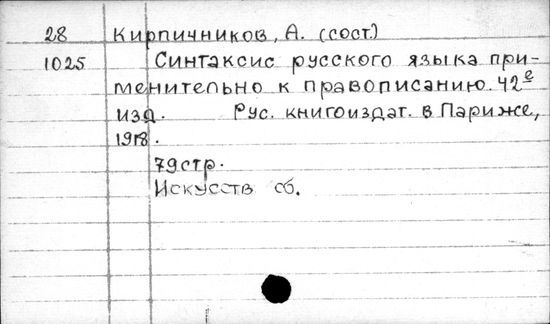 28 Кирпичников, А. (сост.)
1025 Синтаксис русского языка при-
менительно к правописанию. 42е
изд. Рус. книгоиздат. в Париже,
1918.
79 стр.
Искусств сб.